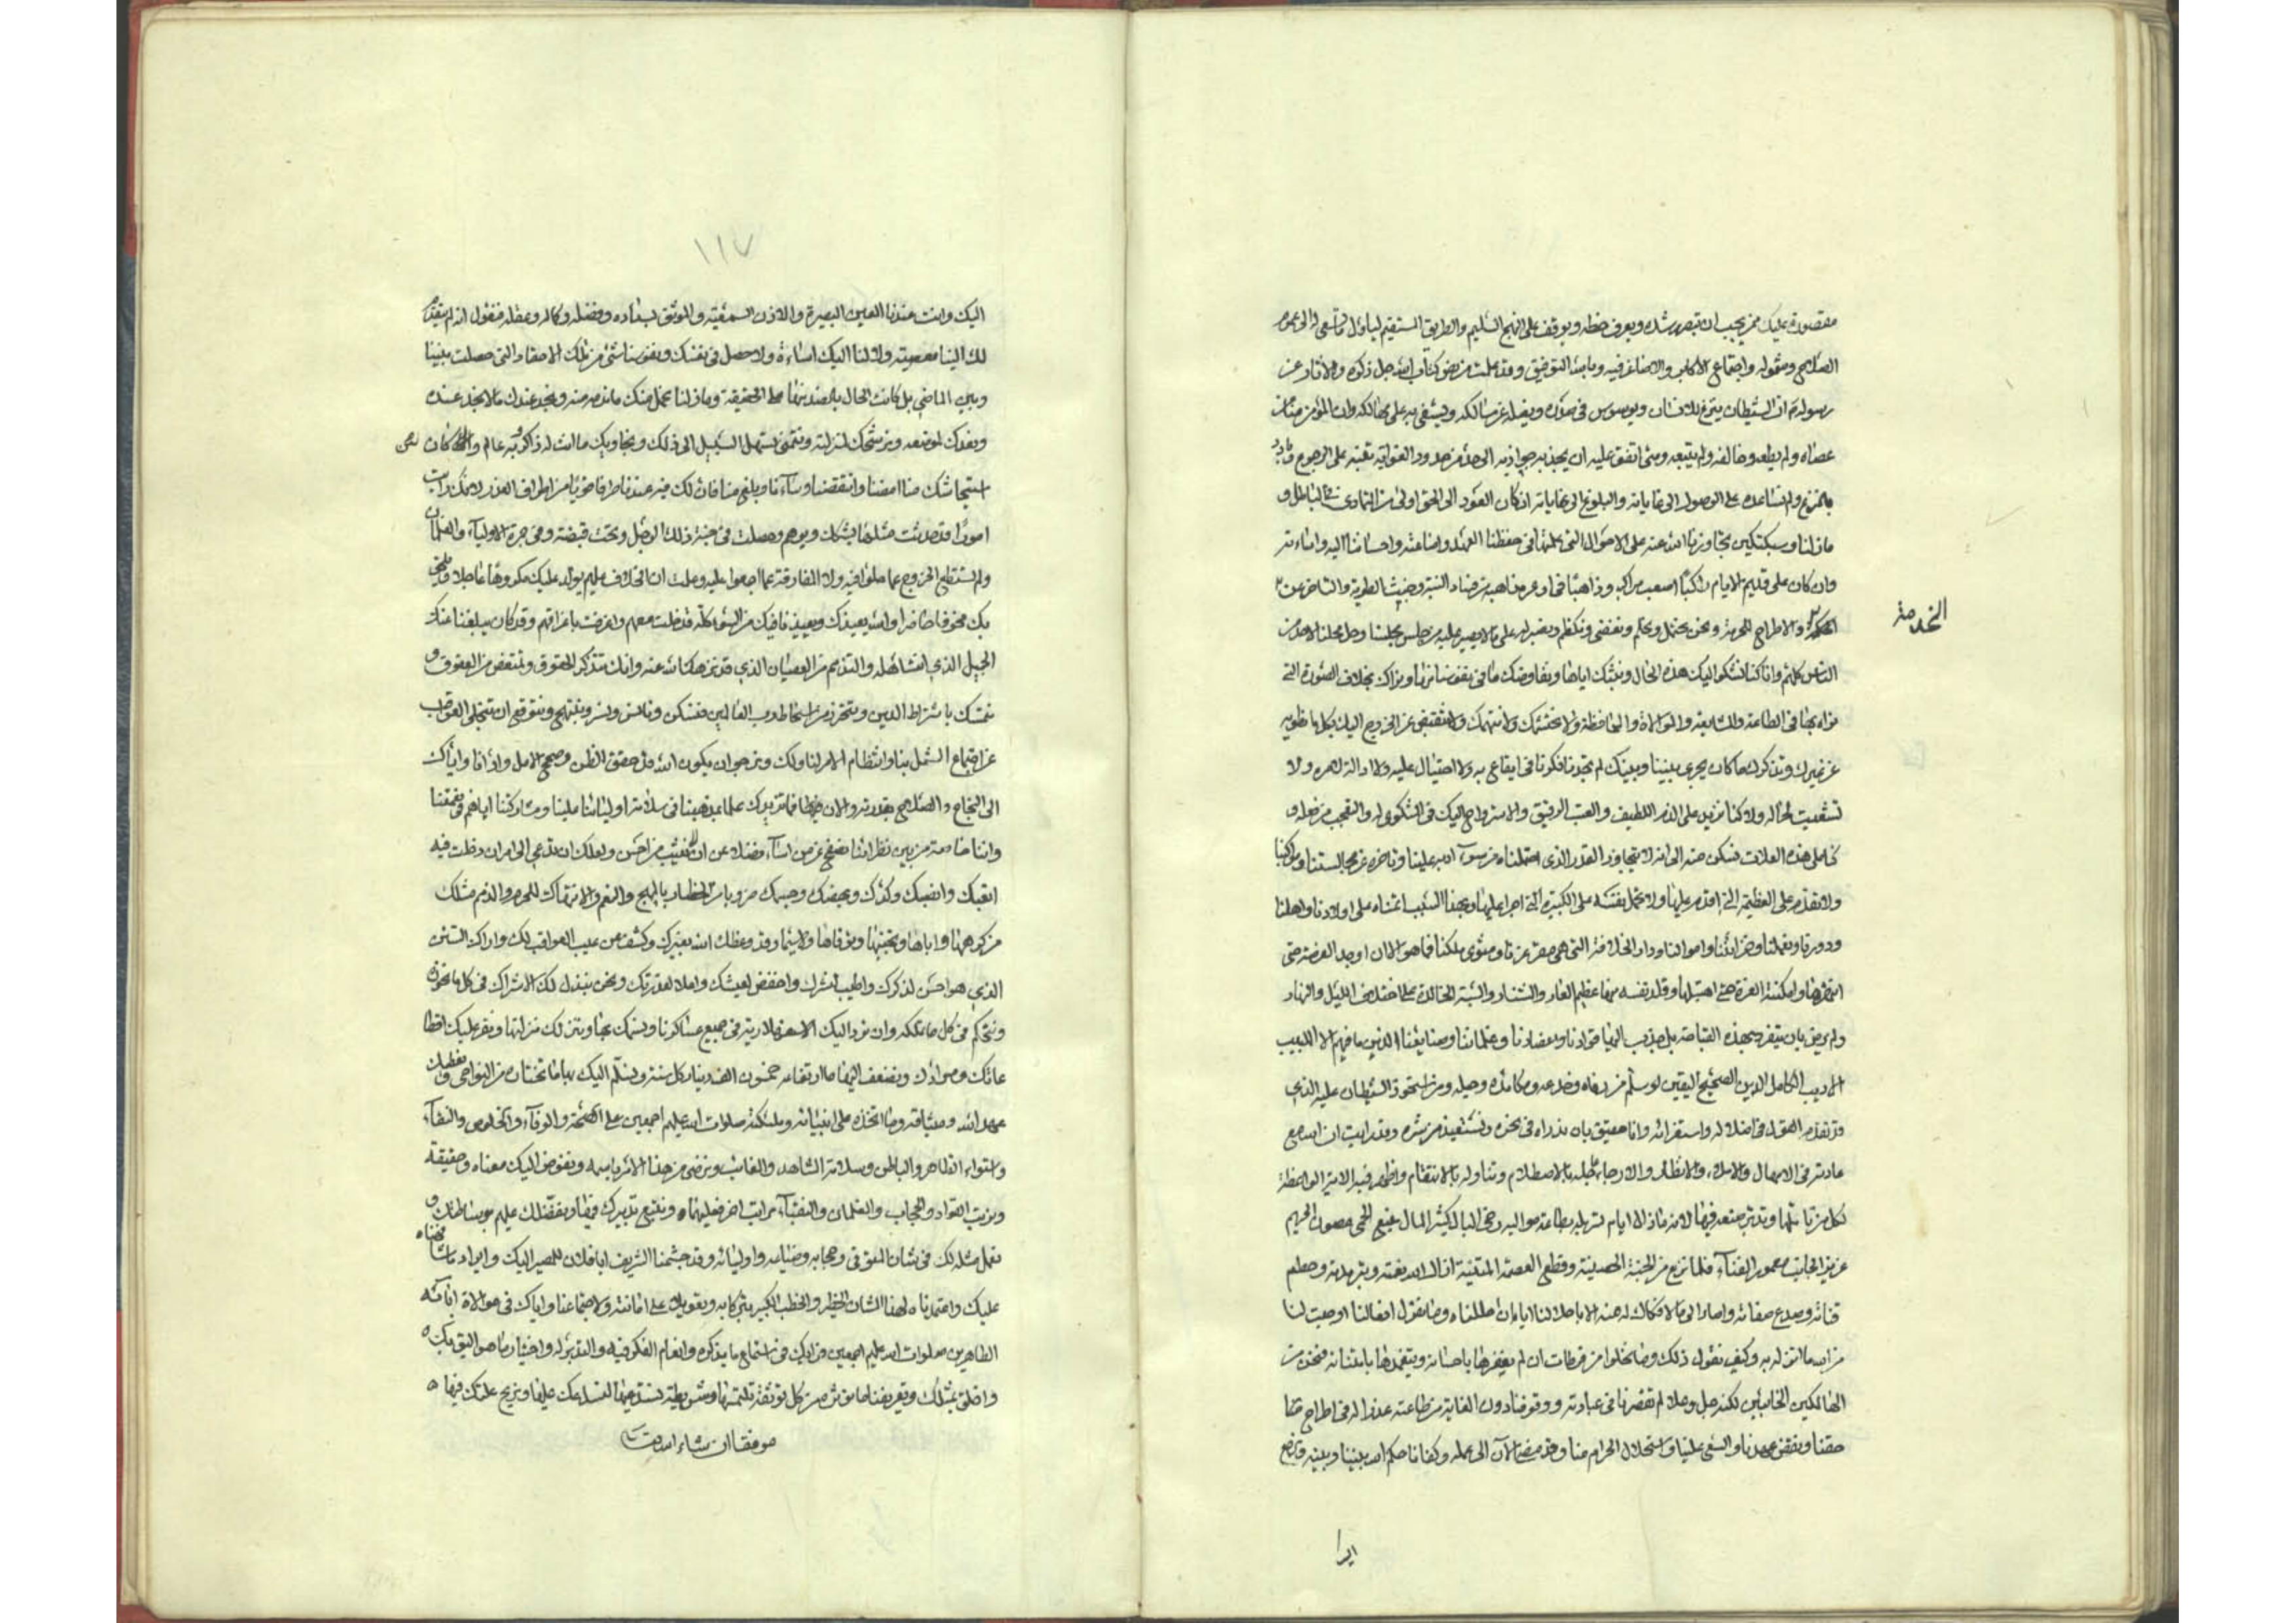 مقصورة عليك ممن يجب ان تبصره رشده ويعرف حظه ويوقف على النهج السليم والطريق المستقيم
الصلاح وشموله واجتماع الاكابر والاصاغر فيه وبالله التوفيق وقد علمت من نص كتاب الله جل ذكره والاثار عن
رسوله ان الشيطان ينزغ للانسان ويوسوس في صدره ويضله عن مسالكه ويشفي به على مهالكه وان المؤمن منا من
عصاه ولم يطعه وخالفه ولم يتبعه ومتى اتفق عليه ان يجذبه جواذبه الى حد من حدود الغواية بقيه على الرجوع
بالنزوع ولم يساعده على الوصول الى غاياته والبلوغ الى نهاياته اذ كان العود الى الحق اولى من التمادي في الباطل و
ما زلنا وسبكتكين تجاوز الله عنه على الاحوال التي علمتها في حفظنا العهد واضاعته واحساننا اليه واساءته
وان كان على قديم الايام راكبا اصعب مراكبه وذاهبا في اوعر مذاهبه من فساد النية وخبث الطوية والتاخر عن
الخدمة
والاطراح للحرمة ونحن نحتمل ونحلم ونغضي ونكظم ونصبر له على ما لا يصبر عليه من جلس مجلسنا وحل محلنا لاحد من
الناس كلهم وانا كنا نشكو اليك هذه الحال ونبثك اياها ونفاوضك ما في نفوسنا منها ونراك بخلاف الصورة التي
نراه بها في الطاعة والمتابعة والموالاة والمحافظة ولا نحتشمك ولا نتهمك ولا ننقبض عن الخروج اليك بكل ما نطويه
عن غيرك وتذكرك ما كان يجري بيننا وبينك لم تجدنا فكرنا في ايقاع به ولا احتيال عليه ولا ازالة لامره ولا
تشعيث لحاله ولا كنا نزيد على الذم اللطيف والعتب الرفيق والاسترواح اليك في الشكوى له والتعجب من فعله و
كنا على هذه العلات نسكن منه الى انه لا يتجاوز القدر الذي احتملناه من سوء ادبه علينا وتاخره عن مجالستنا
ولا يقدم على العظيمة التي اقدم عليها ولا تحمله نفسه على الكبيرة التي اجرا عليها وبهذا السبب ائتمناه على اولادنا واهلنا
ودورنا ونعمنا وخزائننا واموالنا ودار الخلافة التي هي مقر عزنا ومثوى ملكنا فما هو الا ان وجد الفرصة حتى
انتهزها وامكنته الغرة حتى اهتبلها وقلد نفسه بها عظيم العار والشنار والسبة الخالدة على اختلاف الليل والنهار
ولم يرض بان يتفرد بهذه القباحة بل جذب اليها قوادنا وعضادنا وغلماننا وصنايعنا الذين ما فيهم الا اللبيب
الاديب الكامل الدين الصحيح اليقين لو سلم من دهاه وخدعه ومكائده وحيله ومن استحوذ الشيطان عليه الذي
قد تقدم القول في اضلاله واستفزازه وانا حقيق بان ندراه في نحره ونستعيذ من شره وقد رايت ان الله مع
عادته في الامهال والاملاء والانظار والارجاء عاجله بالاصطلام وتناوله بالانتقام واظهر فيه الاية الواعظة
لكل من تاملها وتدبر صنعه فيها لانه ما زال ايام تسربله بطاعة مواليه رخي البال كثير المال منيع الحمى مصون الحريم
عزيز الجانب معمور الفناء فلما نزع من الجنة الحصينة وقطع العصمة المتينة ازال الله نعمته وبتر مدته وحطم
قناته وصدع صفاته واصاره الى ما لا فكاك له منه الا باحلالنا اياه ان حللناه وما نقول افعالنا اوجبت لنا
من الله ما انزله به وكيف نقول ذلك وما نخلوا من فرطات ان لم يغفرها باحسانه ويتغمدها بامتنانه فنحن من
الهالكين الخائبين لكنه جل وعلا لم تقصيرنا في عبادته ووقوفنا دون الغاية من طاعته عذرا له في اطراح حقنا
حقنا ونقض عهدنا والسعي علينا واستحلال الحرام منا وقد مضى الان الى عمله وكفانا حكم الله بيننا وبينه
ايرا
١١٧
اليك وانت عندنا العين البصيرة والاذن السميعة والموثوق بسداده وفضله وكماله وعقله فنقول انه لم يتقدم
لك الينا معصية ولا لنا اليك اساءة ولا حصل في نفسك ونفوسنا شئ من تلك الاحقاد التي حصلت بيننا
وبين الماضي بل كانت الحال بالضد منها على الحقيقة وما زلنا نحمل منك ما نذمه منه ونجد عندك ما لا نجد عنده
ونعدك لموضعه ونرشحك لمنزلته ونتمنى تسهل السبيل الى ذلك ونجاريك ما انت له ذاكر وبه عالم وان كان
استيحاشك منا امضنا وانقصنا وساءنا وبلغ منا فان لك فيه عندنا طرفا قويا من اطراف العذر لانك رايت
امورا قد حدثت مثلها يشكك ويوهم وحصلت في جنبة ذلك الرجل وتحت قبضته وفي حجرة الاولياء والغلمان
ولم تستطع الخروج عما دخلوا فيه ولا المفارقة عما اجمعوا عليه وعلمت ان الخلاف عليهم يولد عليك مكروها عاجلا
بك مخوفا حاضرا والله يعيذك ويعيذنا فيك من السوء كله فدخلت معهم واعترفت باعترافهم وقد كان يبلغنا عنك
الجميل الذي انت اهله والتذمم من العصيان الذي قد نزهك الله عنه وانك تتذكر الحقوق وتمتعض من العقوق و
تتمسك باشراط الدين وتتحرز من اسخاط رب العالمين فنسكن ونانس ونسر ونبتهج ونتوقع ان تنجلي العواقب
عن اجتماع الشمل بنا وانتظام الامر لنا ولك ونرجو ان يكون الله قد حقق الظن وصحح الامل
الى النجاح والصلاح بقدرته والان فما نزيدك علما بمذهبنا في سلامة اوليائنا علينا ومشاركتنا اياهم في نعمتنا
واننا خاصة من بين نظرائنا نصفح عن من اساء فضلا عن ان نثيب من احسن ولعلك ان تدعى الى امر ان دخلت فيه
اتعبك وانصبك وكدك وبهضك وحبسك ضروبا من الخطار بالمهج والنعم والانتهاك للحرم والذمم مثلك
من كرهها واباها وتجنبها وتوقاها ولا سيما وقد وعظك الله بغيرك وكشف عن عيب العواقب لك واراك السنن
الذي هو احسن لذكرك واطيب لنشرك واخفض لعيشك واعلا لقدرتك ونحن نبذل لك الاشراك في كل ما نحويه
ونتحكم في كل ما نملكه وان نرد اليك الاسفهلارية في جميع عساكرنا ونسمك بها وننزلك منزلتها ونقر عليك اقطا
عاتك وموادك ونضعف اليها ما ارتفاعه خمسون الف دينار كل سنة ونسلم اليك بها ما تختاره من النواحي ونعطيك
عهد الله وميثاقه وما اتخذه على انبيائه وملئكته صلوات الله عليهم اجمعين على الصحة والوفاء والخلوص والنقاء
واستواء الظاهر والباطن وسلامة الشاهد والغائب ونرضى من هذا الامر باسمه ونفوض اليك معناه وحقيقته
ونرتب القواد والحجاب والغلمان والنقباء مراتب اخر فعليناه ونتبع تدبيرك فيها ونفضلك عليهم بوسائطك و
نعمل مثله لك في شان المتوفى وحجابه وخياسه واوليائه وقد جشمنا الشريف ابا فلان للمصير اليك وايراد ما شافهناه
عليك واعتمدناه لهذا الشان الخطير والخطب الكبير
الطاهرين صلوات الله عليهم اجمعين فرايك في استماع ما يذكره وانعام الفكر فيه والتدبر له واختيار ما هو اليق بك
واخلق بمثلك وتعريفنا ما نؤثره من كل توثقة تلتمسها وشريطة تستدعيها لنساعدك عليها ونزيح علتك فيها
موفقا ان شاء الله تعالى